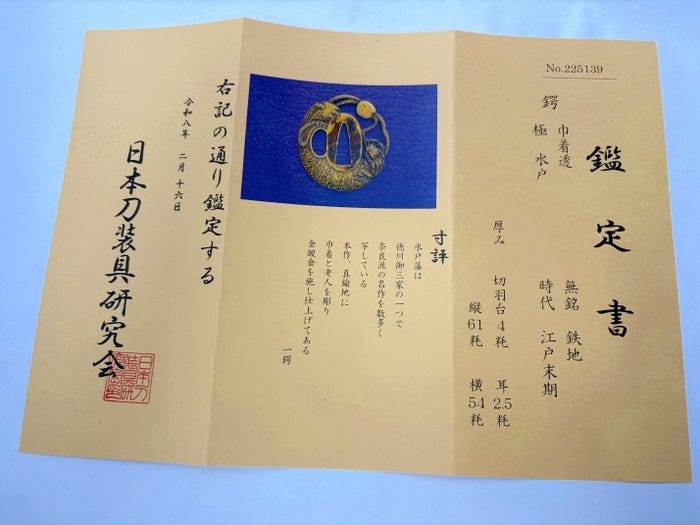 No.225139
鑑定書
鍔 巾着透 無銘 鉄地
極 水戸 時代 江戸末期
厚み 切羽台 4 粍 耳 2.5 粍
縦 61 粍 横 54 粍
寸評
水戸藩は
徳川御三家の一つで
奈良派の名作を数多く
写している
本作、真鍮地に
巾着と老人を彫り
金鍍金を施し仕上げてある
一鍔
右記の通り鑑定する
令和八年 二月十六日
日本刀装具研究会